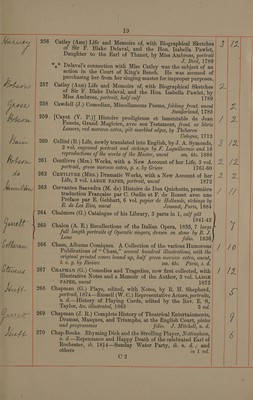 19
256 Catley (Ann) Life and Memoirs of, with Biographical Sketches
of Sir F. Blake Delaval, and the Hon. Isabella Pawlet,
Daughter to the Earl of Thanet, by Miss Ambross, portrait
J. Bird, 1789
*** Delaval's connection with Miss Catley was the subject of an
action in the Court of King's Bench. He was accused of
purchasing her from her singing master for improper purposes.
257 Catley (Ann) Life and Memoirs of, with Biographical Sketches
of Sir F. Blake Delaval, and the Hon. Isabella Pawlet, by
Miss Ambross, portrait, half calf 1789
258 Cawdell (J.) Comedian, Miscellaneous Poems, folding front. uncut
Sunderland, 1785
259 [Cayet (V. P.)] Histoire prodigieuse et lamentable de Jean
Fauste, Grand Magicien, avec son Testament, front. ex libris
Lamare, red morocco extra, gilt marbled edges, by Thibaron
Cologne, 1712
260 Cellini (B.) Life, newly translated into English, by J. A. Symonds,
2 vol. engraved portrait and etchings by F. Laguillermie and 18
reproductions of the works of the Master, uncut sm. 4to, 1888
261 Centlivre (Mrs.) Works, with a New Account of her Life, 3 vol.
portrait, green morocco extra, g. e. 1760-61
262 CENTLIVRE (MRS.) Dramatic Works, with a New Account of her
Life, 3 vol. LARGE PAPER, portrait, uncut 1872
263 Cervantes Saavedra (M. de) Histoire de Don Quichotte, première
traduction Française par C. Oudin et F. de Rosset avec une
Préface par E. Gebhart, 6 vol. papier de Hollande, etchings by
R. de Los Rios, uncut Jouaust, Paris, 1884
264 Chalmers (G.) Catalogue of his Library, 3 parts in 1, calf gilt
1841-42
265 Chalon (A. E.) Recollections of the Italian Opera, 1835, 7 large
full length portraits of Operatic singers, drawn on stone by R. J.
Lane folio, 1836
266 Cham, Albums Comiques. A Collection of the various Humorous
Publications of "Cham," several hundred illustrations, with the
original printed covers bound up, half green morocco extra, uncut,
t. e. g. by Reviere sm. 4to, Paris, s. d.
267 CHAPMAN (G.) Comedies and Tragedies, now first collected, with
Illustrative Notes and a Memoir of the Author, 3 vol. LARGE
PAPER, uncut 1873
268 Chapman (G.) Plays, edited, with Notes, by R. H. Shepherd,
portrait, 1874—Russell (W. C.) Representative Actors, portraits,
n. d.—History of Playing Cards, edited by the Rev. E. S.
Taylor, &c. illustrated, 1865 3 vol.
269 Chapman (J. K.) Complete History of Theatrical Entertainments,
Dramas, Masques, and Triumphs, at the English Court, plates
and programmes folio. J. Mitchell, n. d.
270 Chap-Books. Rhyming Dick and the Strolling Player, Nottingham,
n. d.—Repentance and Happy Death of the celebrated Earl of
Rochester, ib. 1814—Sunday Water Party, ib. n. d.; and
others in 1 vol.
C 2